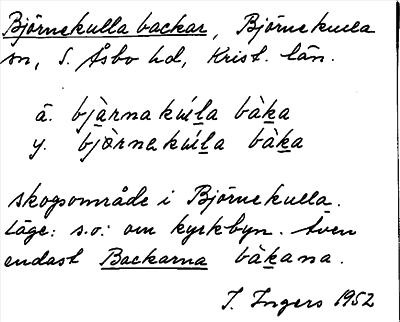 Björnekulla backar, Björnekulla
sn, S. Åsbo hd, Krist. län.
ä. bjàrnakúl̲a bàk̲a
y. bjòrnakúl̲a bàk̲a
skogsområde i Björnekulla.
Läge: s.o. om kyrkbyn. Även
endast Backarna bàk̲ana.
I. Ingers 1952